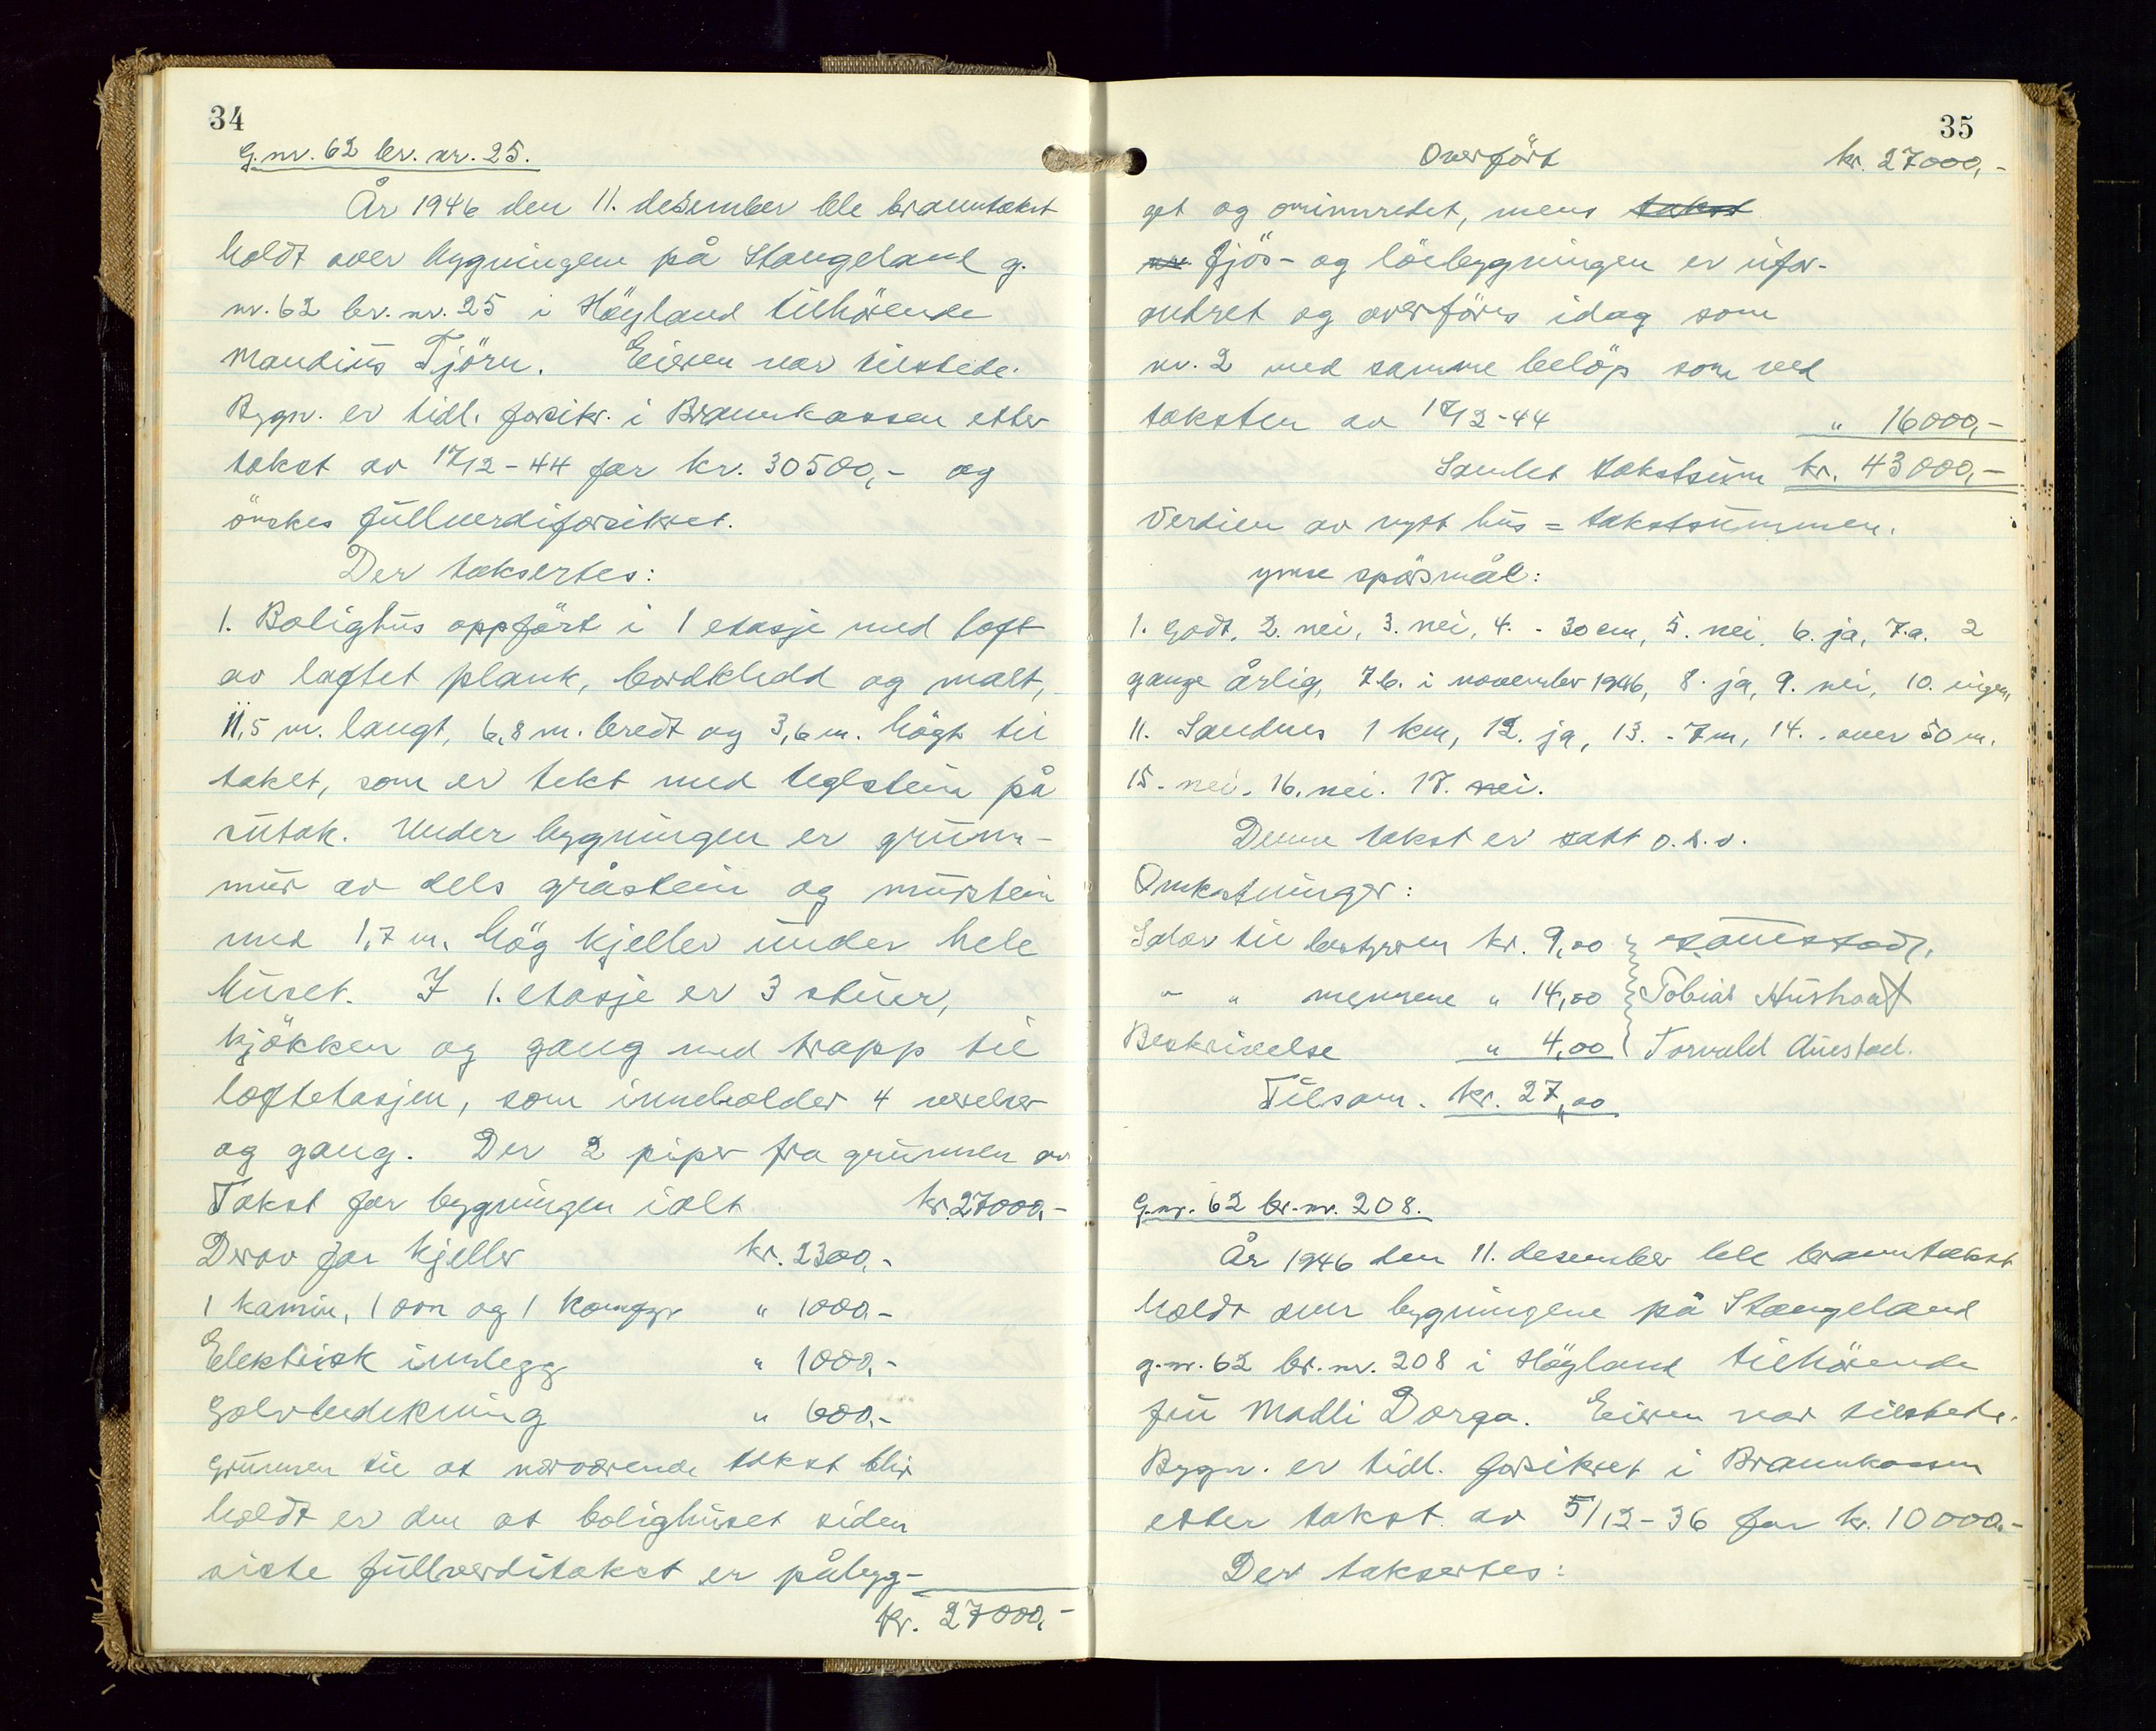 34
G.nr. 62 br. nr. 25.
År 1946 den 11. desember ble branntakst
holdt over bygningene på Stangeland g.
nr. 62 br. nr. 25 i Høyland tilhørende
Maudius Tjörn. Eieren var tilstede.
Bygn. er tidl. forsikr. i Brannkassen etter
takst av 17/12-44 for kr. 30500,- og
önskes fullverdiforsikret.
Der taksertes:
1. Bolighus oppfört i 1 etasje med loft
av laftet plank, bordkledd og malt,
11,5 m. langt, 6,8 m. bredt og 3,6 m. högt til
taket, som er tekt med teglstein på
sutak. Under bygningen er grunn-
mur av dels gråstein og murstein
med 1,7 m. hög kjeller under hele
huset. I 1. etasje er 3 stuer,
kjökken og gang med trapp til
loftetasjen, som inneholder 4 værelser
og gang. Der 2 piper fra grunnen av
Takst for bygningen ialt kr. 27000,-
Derav for kjeller kr. 2300,-
1 kamin, 1 ovn og 1 komfyr " 1000,-
Elektrisk innlegg " 1000,-
Golvbedekning " 600,-
Grunnen til at nærværende takst blir
holdt er den at bolighuset siden
siste fullverditakst er påbyg-
kr. 27000,-
35
Overfört kr. 27000,-
get og ominnredet, mens takst
nr. fjös- og löebygningen er ufor-
andret og overföres idag som
nr. 2 med samme belöp som ved
taksten av 17/12-44 " 16000,-
Samlet takstsum kr. 43000,-
Verdien av nytt hus = takstsummen.
Ymse spörsmål:
1. Godt, 2. nei, 3. nei, 4. - 30 cm, 5. nei, 6. ja, 7.a. 2
gange årlig, 7.b. i november 1946, 8. ja, 9. nei, 10. ingen,
11. Sandnes 1 km, 12. ja, 13. - 7 m, 14. - over 50 m.
15. nei. 16. nei. 17. nei.
Denne takst er satt o.s.v.
Omkostninger:
Salær til bestyreren kr. 9,00
" " mennene " 14,00 Tobias Hushovd
Beskrivelse " 4,00 Torvald Auestad.
Tilsam. kr. 27,00
G.nr. 62 br.nr. 208.
År 1946 den 11. desember ble branntakst
holdt over bygningene på Stangeland
g.nr. 62 br.nr. 208 i Höyland tilhörende
fru Madli Dorga. Eieren var tilstede.
Bygn. er tidl. forsikret i Brannkassen
etter takst av 5/12-36 for kr. 10000,-
Der taksertes: